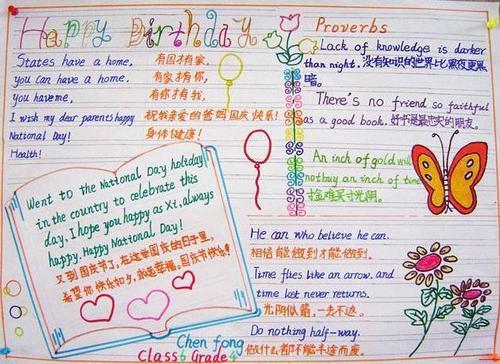 Happy Birthday
States have a home,
有国才有家,
you can have a home,
有家才有你,
You have me,
有你才有我,
I wish my dear parents happy
祝我亲爱的爸妈国庆快乐!
National Day!
身体健康!
Health!
Went to the National Day holiday
in the country to celebrate this
day, I hope you happy as Xi, always
happy. Happy National Day!
又到国庆节了,在这举国庆的日子里,
希望你快乐如夕,永远幸福。国庆节快乐!
Chen fong
Class6 Grade4
Proverbs
Lack of knowledge is darker
than night. 没有知识的世界比黑夜更黑
暗。
There's no friend so faithful
as a good book. 好书是最忠实的朋友。
An inch of gold will
not buy an inch of time
寸金难买寸光阴。
He can who believe he can.
相信能做到才能做到。
Time flies like an arrow, and
time lost never returns.
光阴似箭,一去不返。
Do nothing half-way.
做什么都不能半途而废。